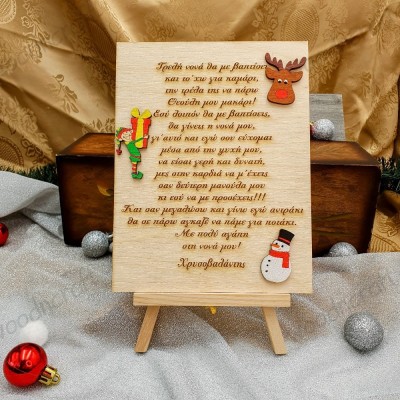 Τρελή νονά θα με βαπτίσει
και το'χω για καμάρι,
την τρέλα της να πάρω
Θεούλη μου μακάρι!
Εσύ λοιπόν θα με βαπτίσεις,
θα γίνεις η νονά μου,
γι'αυτό και εγώ σου εύχομαι
μέσα από την ψυχή μου,
να είσαι γερή και δυνατή,
μες στην καρδιά να μ'έχεις
σαν δεύτερη μανούλα μου
κι εσύ να με προσέχεις!!!
Και σαν μεγαλώσω και γίνω εγώ αντράκι
θα σε πάρω αγκαζέ να πάμε για ποτάκι.
Με πολύ αγάπη
στη νονά μου!
Χρυσοβαλάντης